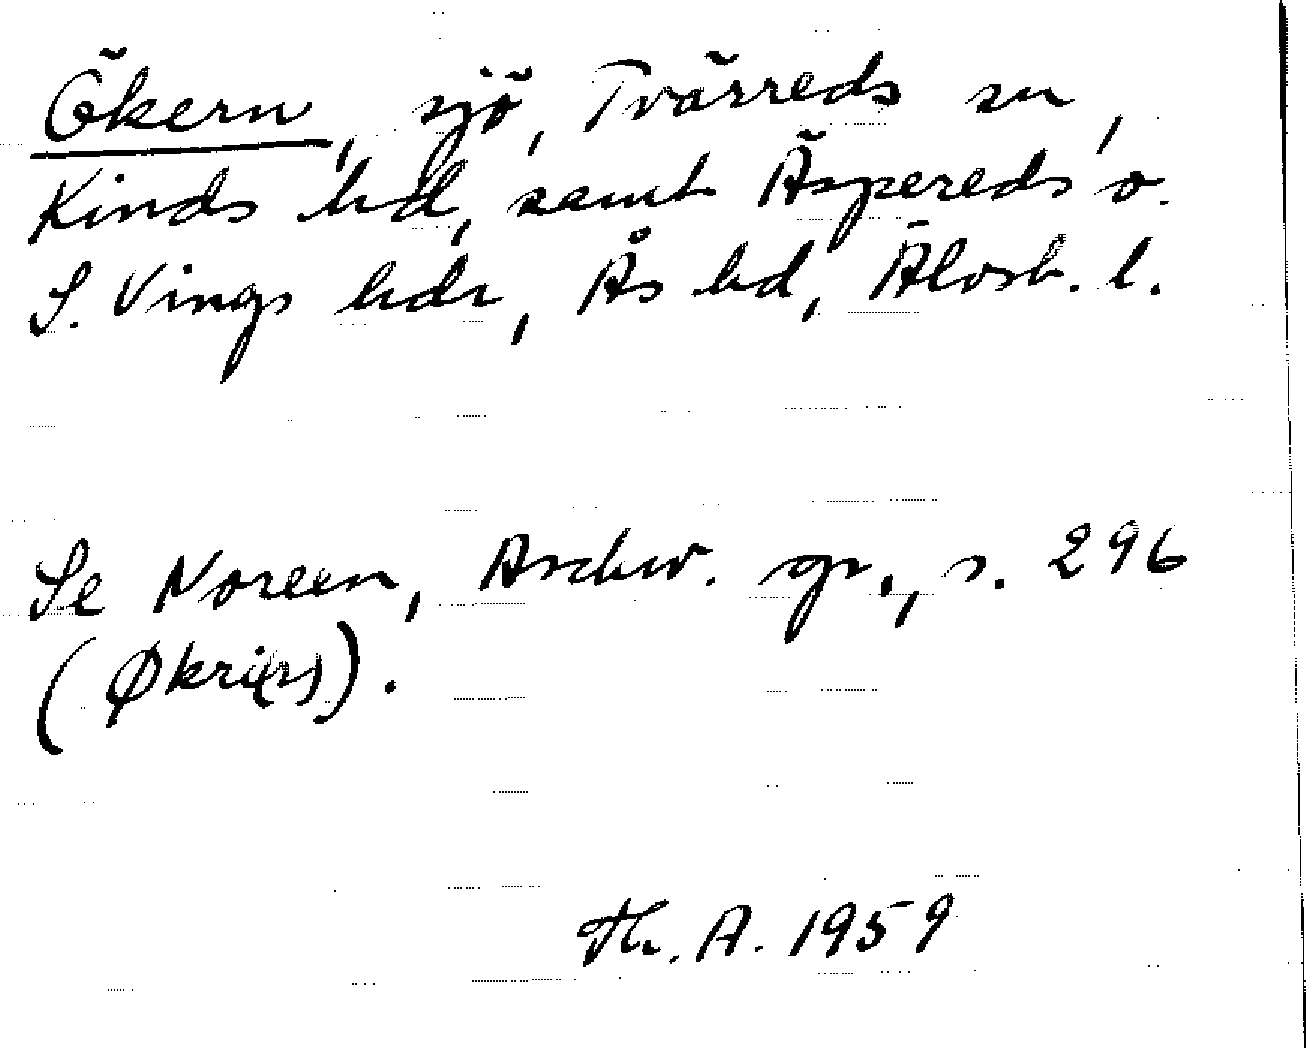 Ökern, sjö, Tvärreds sn,
Kinds hd, samt Äspereds o.
S. Vings sdr, Ås hd, Älvsb. l.
Se Noreen, Aschw. gr., s. 296
(Økri(r)).
Th. A. 1959